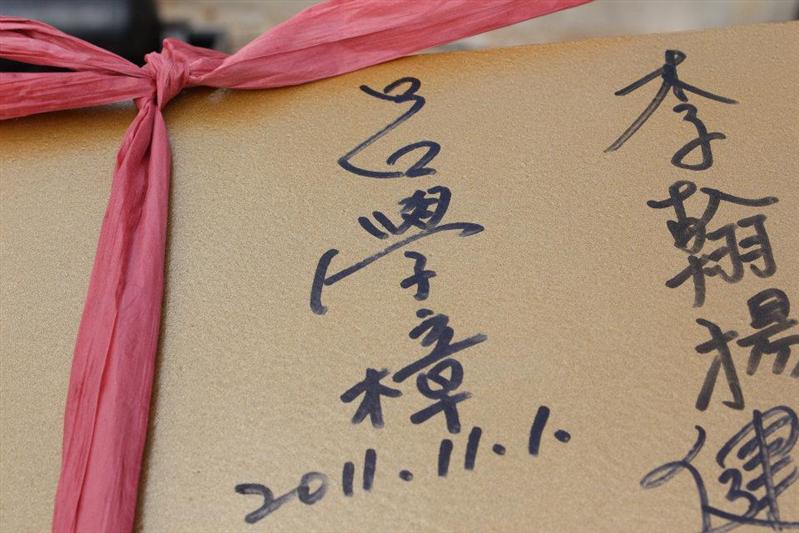 李翰揚健
呂學樟
2011.11.1.